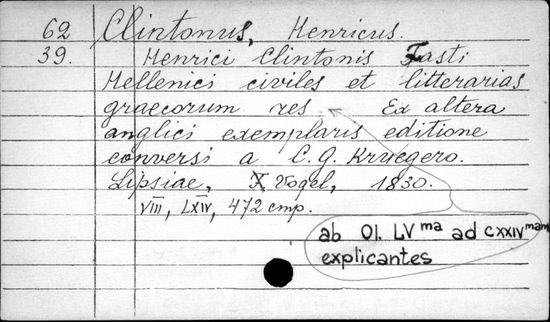 62 Clintonus, Henricus.
39. Henrici Clintonis Fasti
Hellenici civiles et litterarias
graecorum res Ex altera
anglici exemplaris editione
conversi a C. G. Kruegero.
Lipsiae, Vogel, 1830.
VIII, LXIV, 472 cmp.
ab Ol. LV ma ad CXXIV mam
explicantes